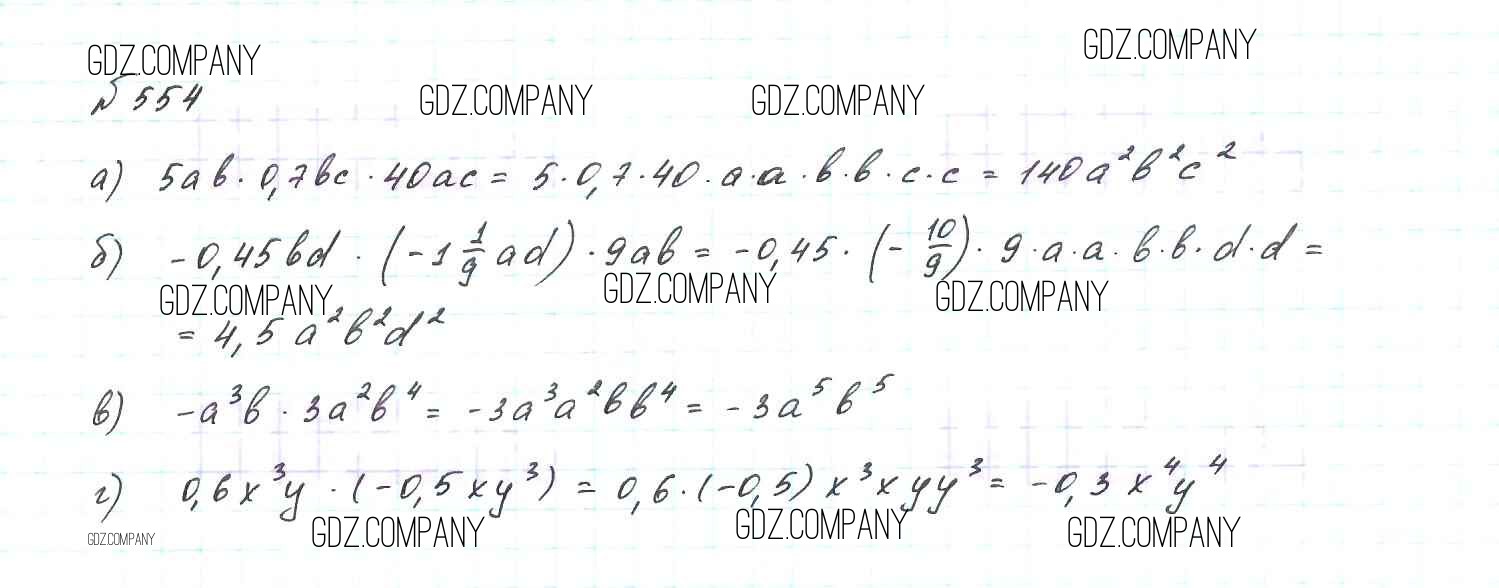 GDZ.COMPANY
GDZ.COMPANY
№ 554
GDZ.COMPANY GDZ.COMPANY
а) 5ab · 0,7bc · 40ac = 5 · 0,7 · 40 · a · a · b · b · c · c = 140a²b²c²
б) -0,45bd · (-1 1/9 ad) · 9ab = -0,45 · (-10/9) · 9 · a · a · b · b · d · d =
GDZ.COMPANY GDZ.COMPANY GDZ.COMPANY
= 4,5a²b²d²
в) -a³b · 3a²b⁴ = -3a³a²bb⁴ = -3a⁵b⁵
г) 0,6x³y · (-0,5xy³) = 0,6 · (-0,5)x³xyy³ = -0,3x⁴y⁴
GDZ.COMPANY GDZ.COMPANY GDZ.COMPANY GDZ.COMPANY